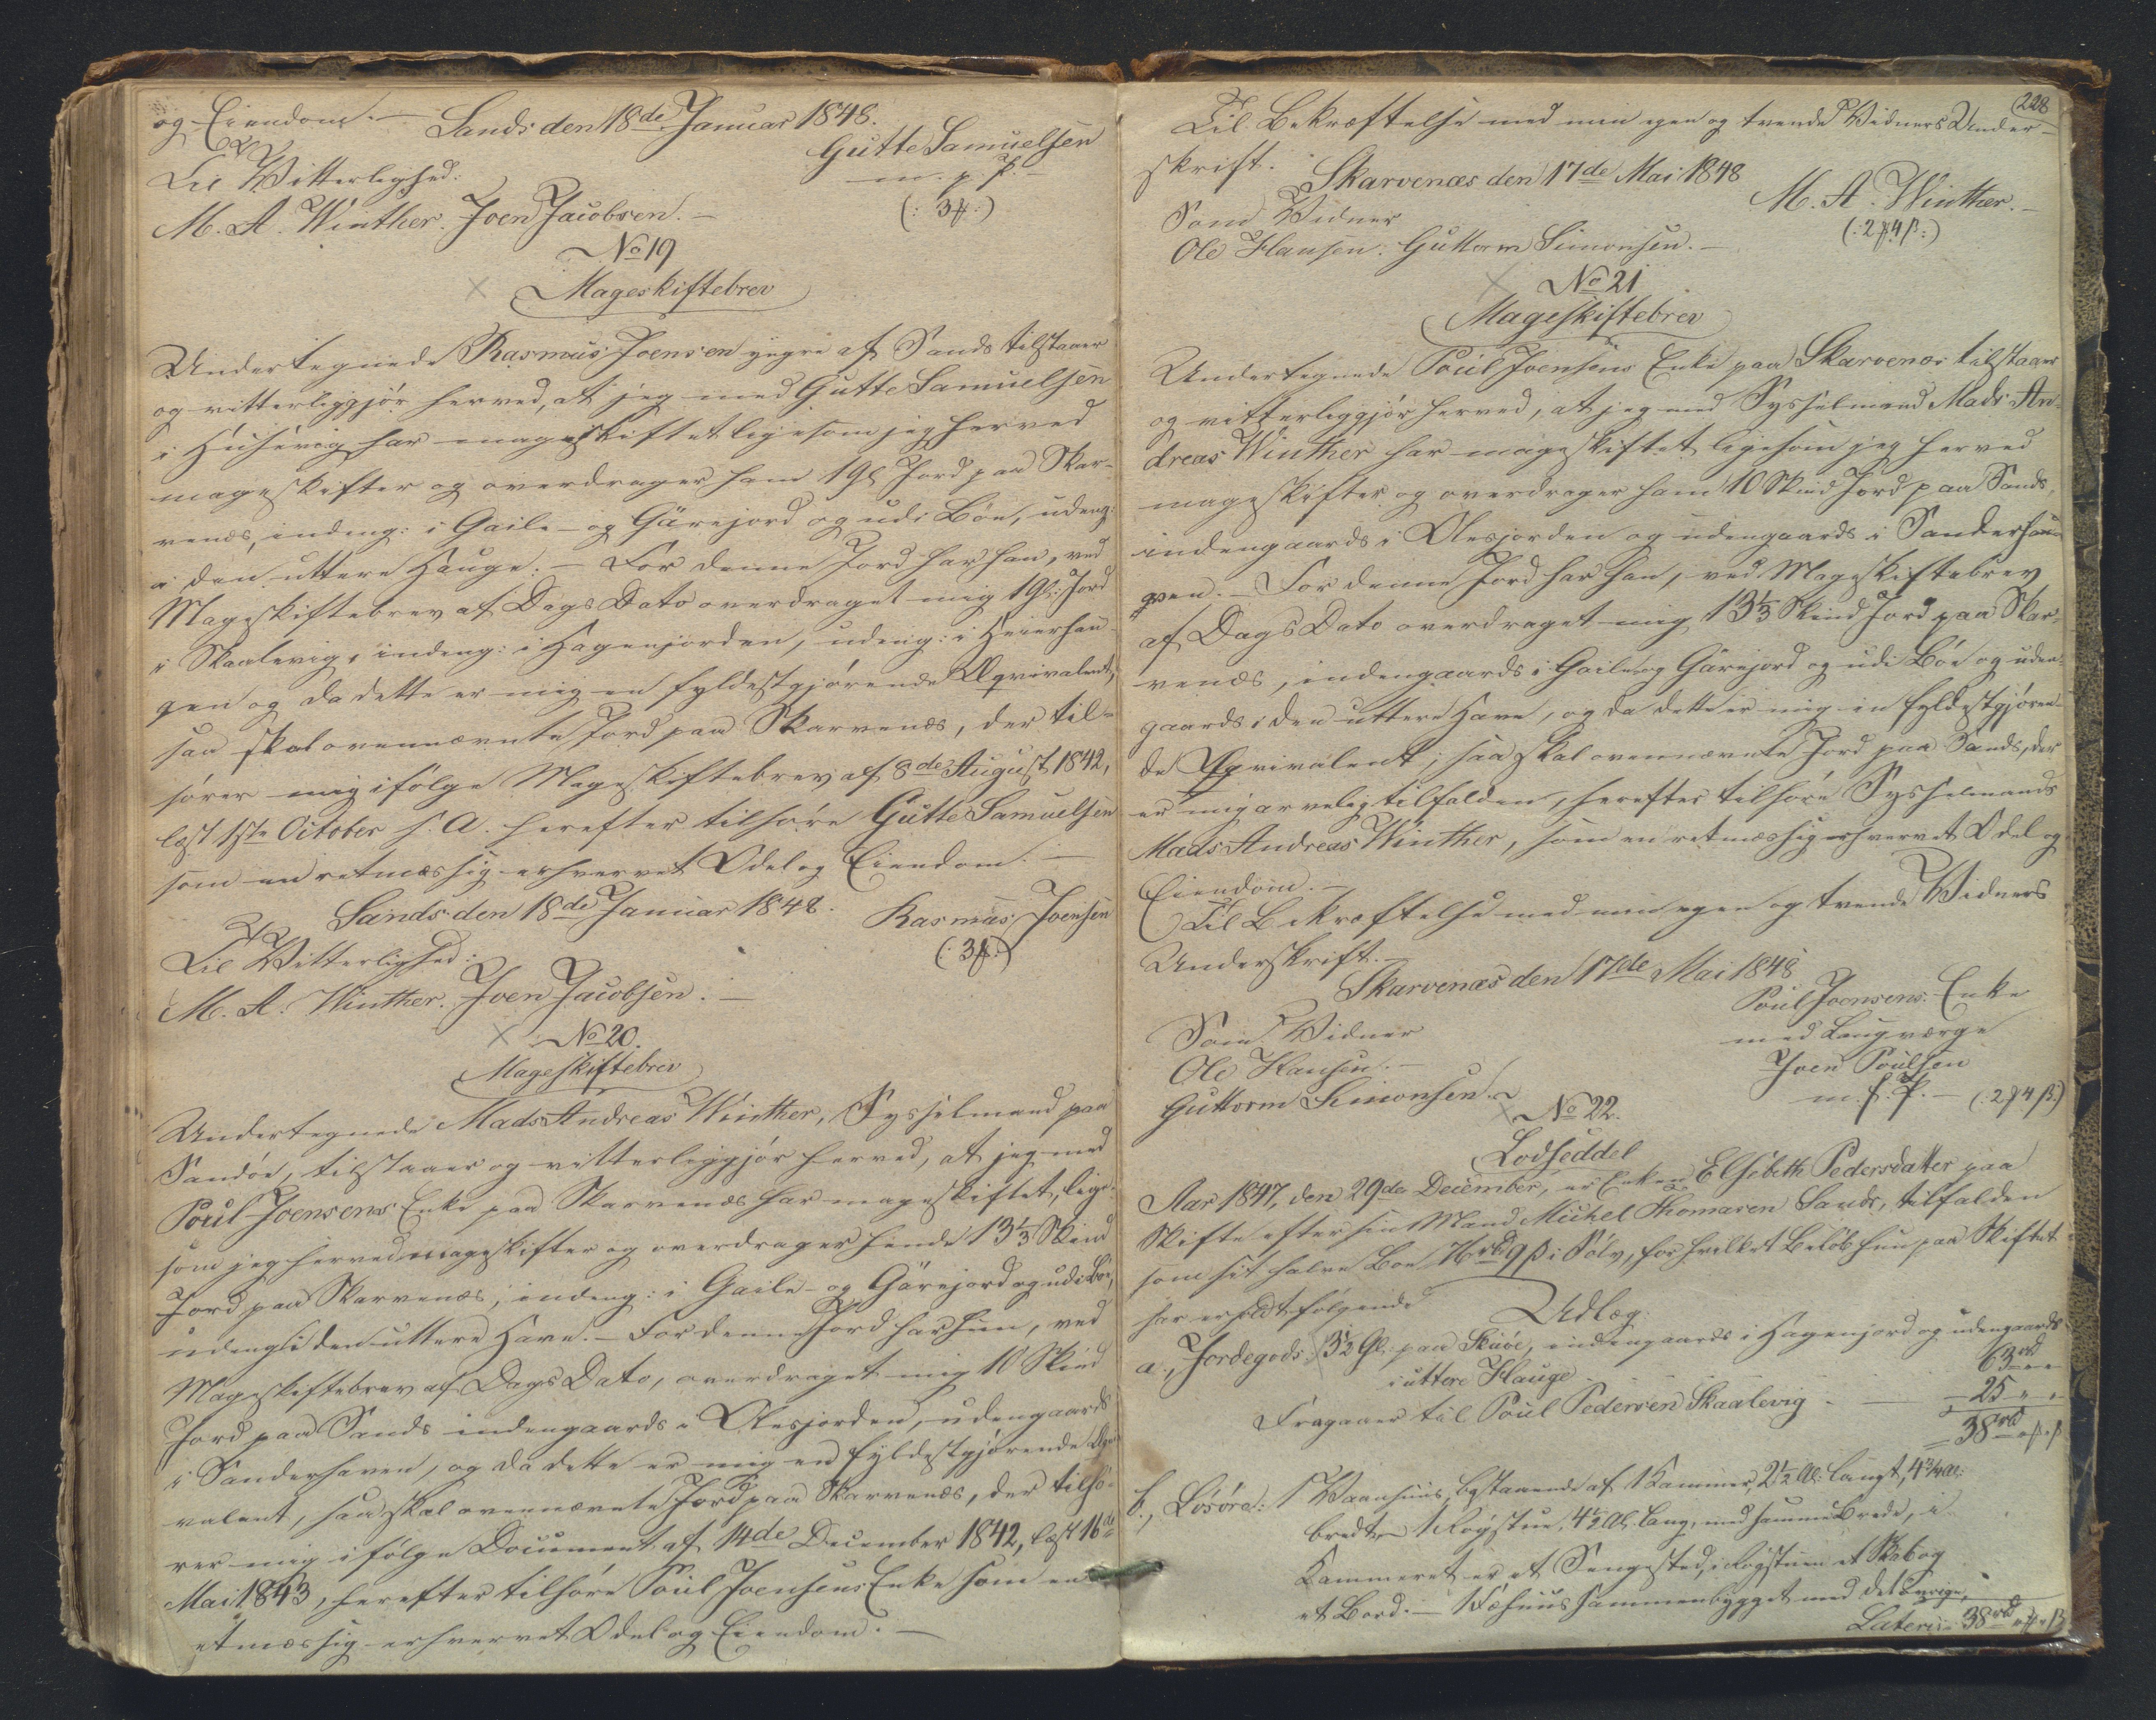 og Eiendom. — Sands den 18de Januar 1848.
Gutte Samuelsen
m. p. P. —
Til Witterlighed:
M. A. Winther. Joen Jacobsen. —
(: 3 ꝑ :)
No 19
Mageskiftebrev
Undertegnede Rasmus Joensen yngre af Sands tilstaaer
og vitterliggjør herved, at jeg med Gutte Samuelsen
i Húsevig har mageskiftet ligesom jeg herved
mageskifter og overdrager ham 1 Gl Jord paa Skar-
venæs, indeng: i Gaile- og Gärejord og udi Böe, udeng:
i den uttere Hauge. — For denne Jord har han, ved
Mageskiftebrev af Dags Dato overdraget mig 1 Gl: Jord
i Skaalevig, indeng: i Hagenjorden, udeng: i Heierhau-
gen og da dette er mig en fyldestgjörende Æqvivalent,
saa skal ovennævnte Jord paa Skarvenæs, der til-
hører mig ifölge Mageskiftebrev af 8de August 1842,
læst 1ste October s. A. herefter tilhöre Gutte Samuelsen
som en retmæssig erhvervet Odel og Eiendom. —
Sands den 18de Januar 1848.
Rasmus Joensen
Til Witterlighed:
(: 3 ꝑ :)
M. A. Winther. Joen Jacobsen. —
No 20.
Mageskiftebrev
Undertegnede Mads Andreas Winther, Sysselmand paa
Sandöe, tilstaaer og vitterliggjör herved, at jeg med
Poul Joensens Enke paa Skarvenæs har mageskiftet, lige-
som jeg herved mageskifter og overdrager hende 13 1/3 Skind
Jord paa Skarvenæs, indeng: i Gaile- og Gärejord og udi Böe,
udeng: i den uttere Have. — For denne Jord har hun, ved
Mageskiftebrev af Dags Dato, overdraget mig 10 Skind
Jord paa Sands indengaards i Olesjorden, udengaards
i Sanderhaven, og da dette er mig en fyldestgjörende Æqvi-
valent, saa skal ovennævnte Jord paa Skarvenæs, der tilhö-
rer mig ifölge Document af 14de December 1842, læst 16de
Mai 1843, herefter tilhöre Poul Joensens Enke som en
retmæssig erhvervet Odel og Eiendom. —
228
Til Bekræftelse med min egen og tvende Vidners Under-
skrift.
Skarvenæs den 17de Mai 1848
M. A. Winther. —
Som Vidner
(: 2 ꝑ 4 ß :)
Ole Hansen. Guttorm Simonsen. —
No 21
Mageskiftebrev
Undertegnede Poul Joensens Enke paa Skarvenæs tilstaaer
og vitterliggjör herved, at jeg med Sysselmand Mads An-
dreas Winther har mageskiftet ligesom jeg herved
mageskifter og overdrager ham 10 Skind Jord paa Sands,
indengaards i Olesjorden og udengaards i Sanderhau-
gen. — For denne Jord har han, ved Mageskiftebrev
af Dags Dato overdraget mig 13 1/3 Skind Jord paa Skar-
venæs, indengaards i Gaile og Gärejord og udi Böe og uden-
gaards i den uttere Have, og da dette er mig en fyldestgjören-
de Æqvivalent, saa skal ovennævnte Jord paa Sands, der
er mig arvelig tilfalden, herefter tilhöre Sysselmand
Mads Andreas Winther, som en retmæssig erhvervet Odel og
Eiendom. —
Til Bekræftelse med min egen og tvende Vidners
Underskrift. —
Skarvenæs den 17de Mai 1848
Poul Joensens Enke
Som Vidner
med Laugværge
Ole Hansen. —
Joen Poulsen
Guttorm Simonsen.
m. f. P. — (: 2 ꝑ 4 ß :)
No 22.
Lodseddel
Aar 1847, den 29de December, er Enken Elsebeth Pedersdatter paa
Skifte efter sin Mand Michel Thomasen Sands, tilfalden
som sit halve Boe 76 rbd 9 ß i Sölv, for hvilket Belöb hun paa Skiftet
har erholdt fölgende
Udlæg:
a., Jordegods: 3 1/2 Gl. paa Skuöe, indengaards i Hagenjord og udengaards
i uttere Hauge
63 rd " "
Fragaaer til Poul Pedersen Skaalevig — 25 " "
38 rd " ꝑ " ß
b., Lösöre: 1 Vaanhuus, bestaaende af 1 Kammer, 2 1/2 Al: langt, 4 3/4 Al:
bredt, 1 Rögstue, 4 1/2 Al: lang, med samme Brede, i
Kammeret er et Sengested, i Rögstuen et Skab og
et Bord. — 1 Fæhuus sammenbygget med det övrige,
Lateris 38 rd " ꝑ " ß